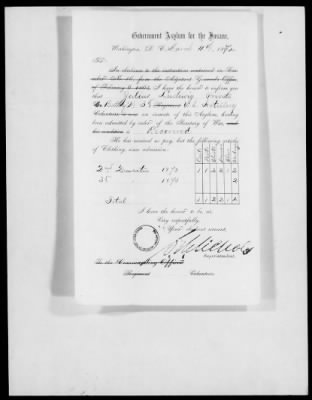 Government Asylum for the Insane,
Washington, D. C. March 11th, 1872
Sir:
In obedience to the instruction contained in Gen-
eral Order No. from the Adjutant General's Office
of February 6 1862, I have the honor to inform you
that Julius Ludwig Private
Co. Battery 5th Regiment U.S. Artillery
Volunteers is now an inmate of this Asylum, having
been admitted by order of the Secretary of War, and
his condition is Deceased
He has received no pay, but the following articles
of Clothing since admission:
2nd Quarter 1870 1 1 2 2 1 2
3d " 1870 2
Total 1 1 2 2 1
I have the honor to be, sir,
Very respectfully,
Your obedient servant,
Nichols
Superintendent.
To the Commanding Officer
Regiment Volunteers